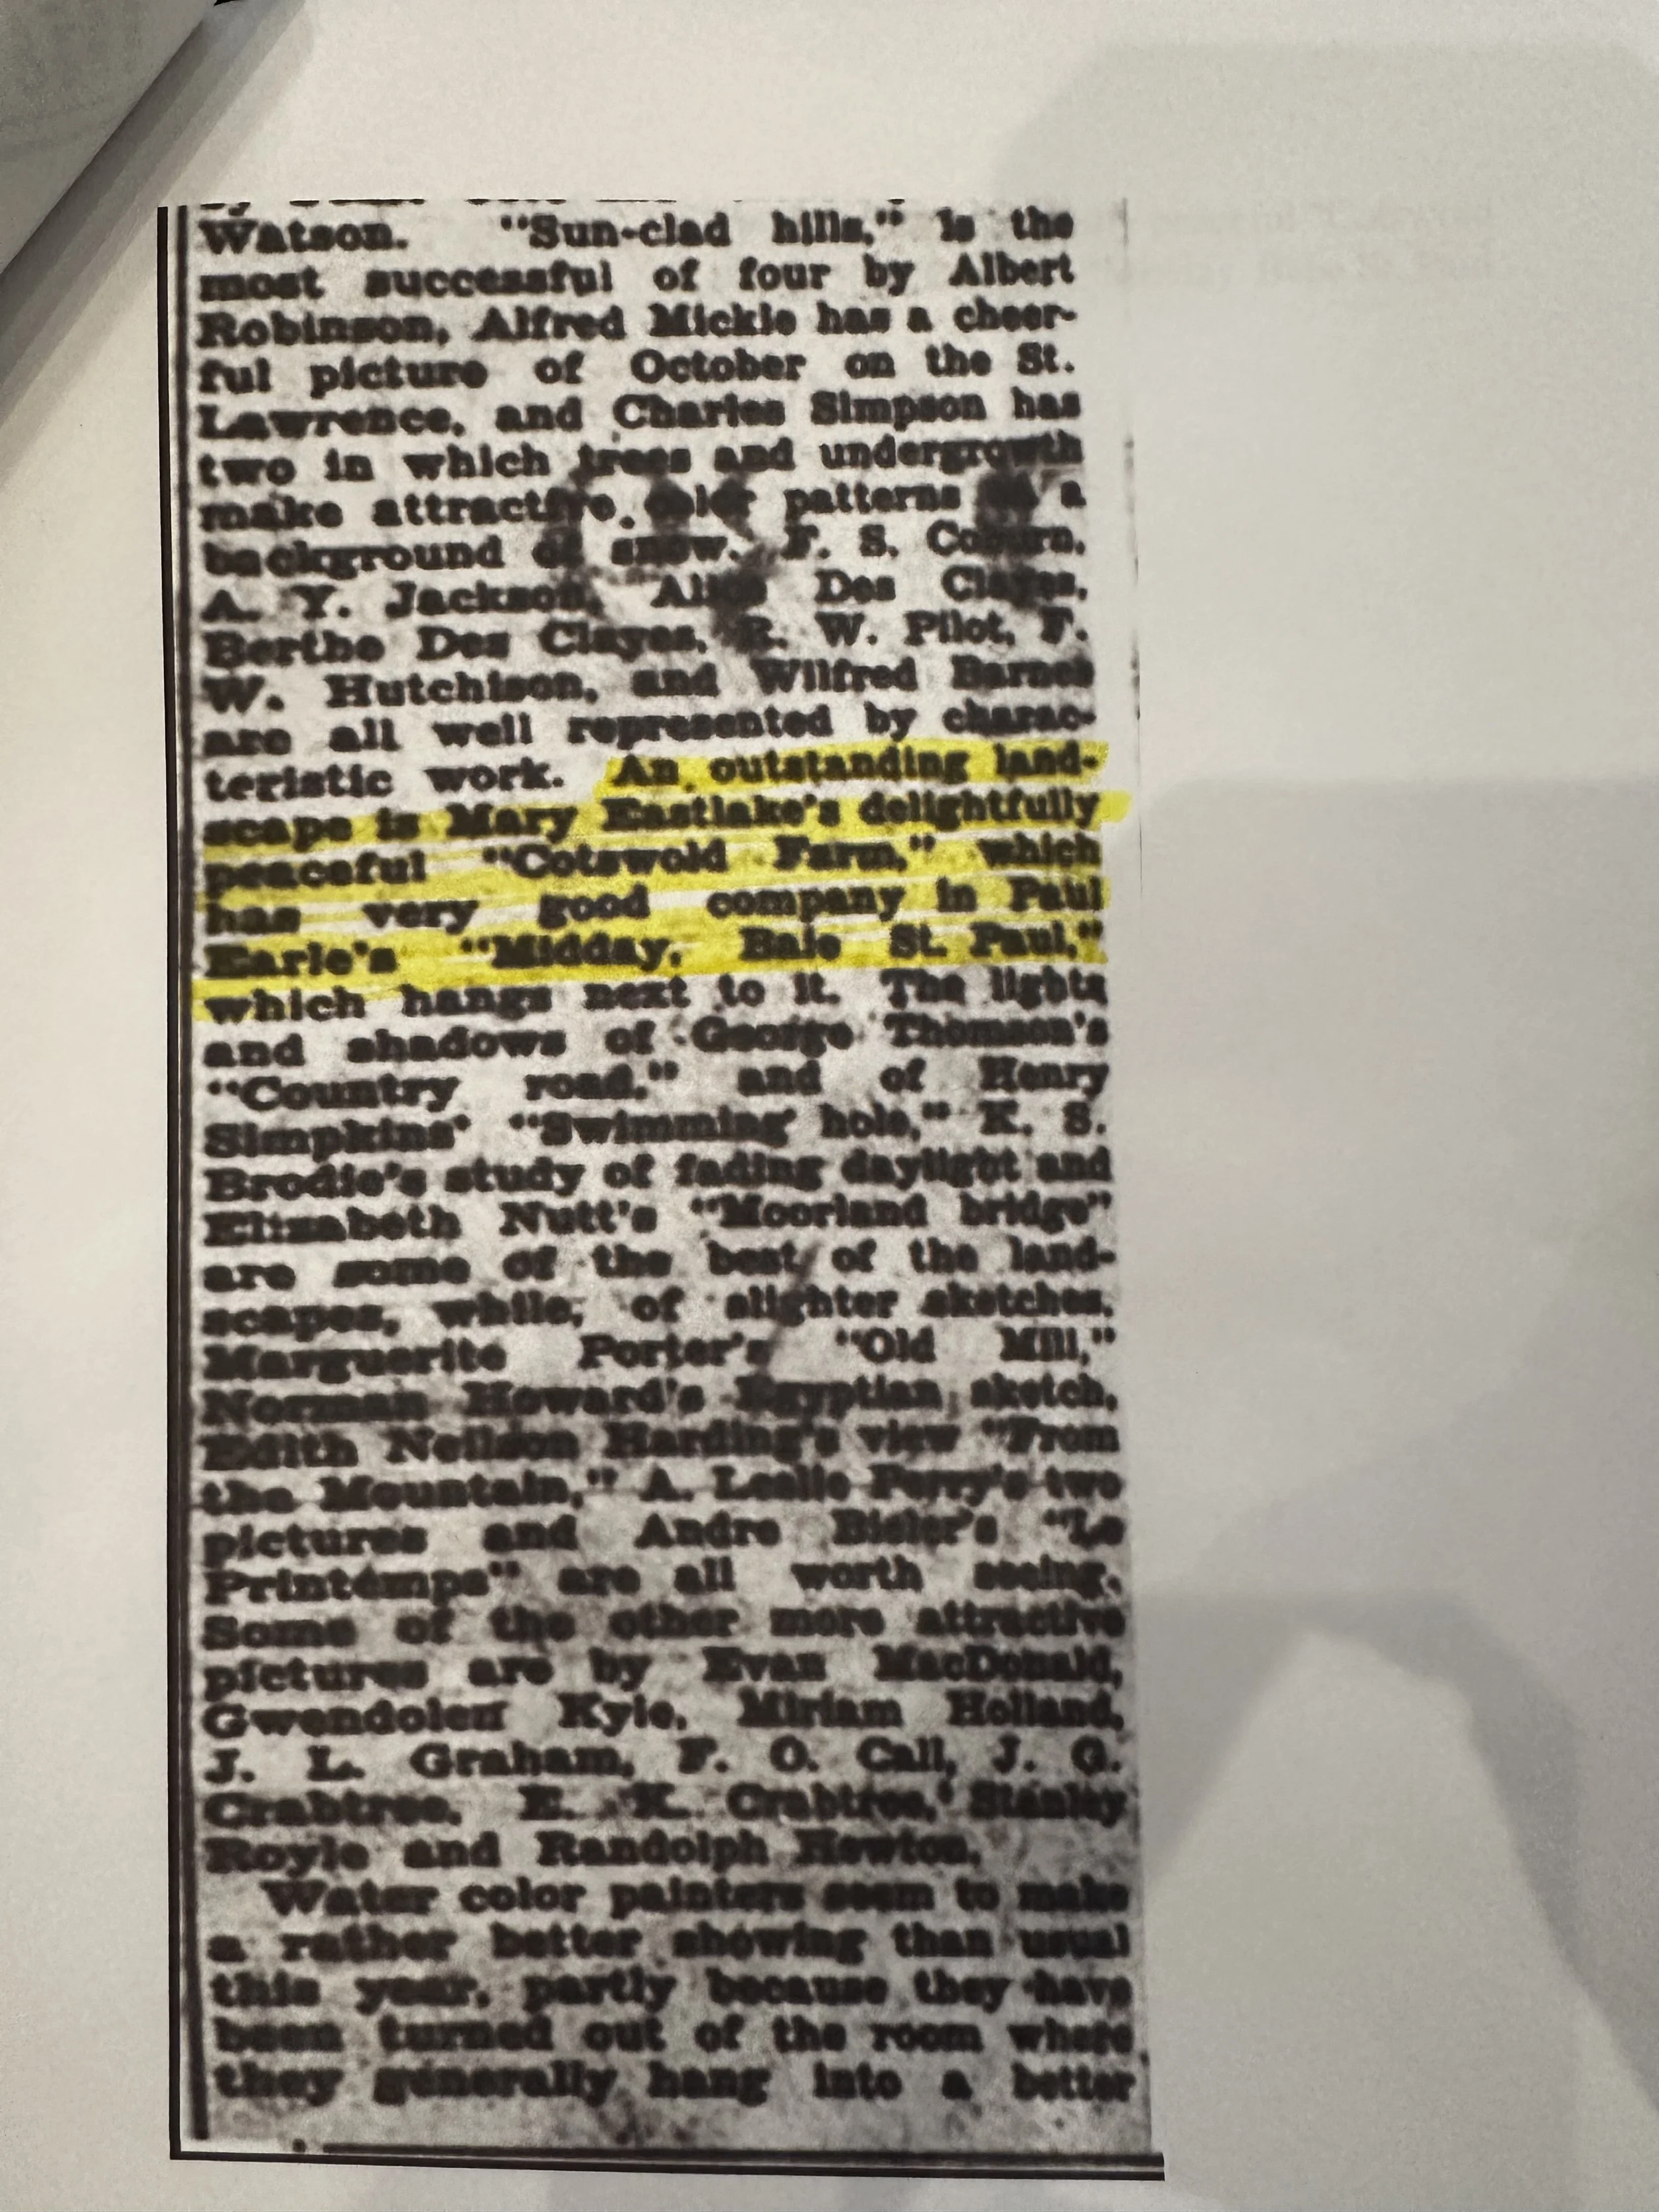 Watson. "Sun-clad hills," is the
most successful of four by Albert
Robinson, Alfred Mickle has a cheer-
ful picture of October on the St.
Lawrence, and Charles Simpson has
two in which trees and undergrowth
make attractive color patterns a
background of snow. F. S. Coburn,
A. Y. Jackson, Alice Des Clayes,
Berthe Des Clayes, R. W. Pilot, F.
W. Hutchison, and Wilfred Barnes
are all well represented by charac-
teristic work. An outstanding land-
scape is Mary Eastlake's delightfully
peaceful "Cotswold Farm," which
has very good company in Paul
Earle's "Midday, Baie St. Paul,"
which hangs next to it. The lights
and shadows of George Thomson's
"Country road," and of Henry
Simpkins' "Swimming hole," K. S.
Brodie's study of fading daylight and
Elizabeth Nutt's "Moorland bridge"
are some of the best of the land-
scapes, while, of slighter sketches,
Marguerite Porter's "Old Mill,"
Norman Howard's Egyptian sketch,
Edith Neilson Harding's view "From
the Mountain," A. Leslie Perry's two
pictures and Andre Bieler's "Le
Printemps" are all worth seeing.
Some of the other more attractive
pictures are by Evan MacDonald,
Gwendolen Kyle, Miriam Holland,
J. L. Graham, F. O. Call, J. G.
Crabtree, E. K. Crabtree, Stanley
Royle and Randolph Hewton.
Water color painters seem to make
a rather better showing than usual
this year, partly because they have
been turned out of the room where
they generally hang into a better